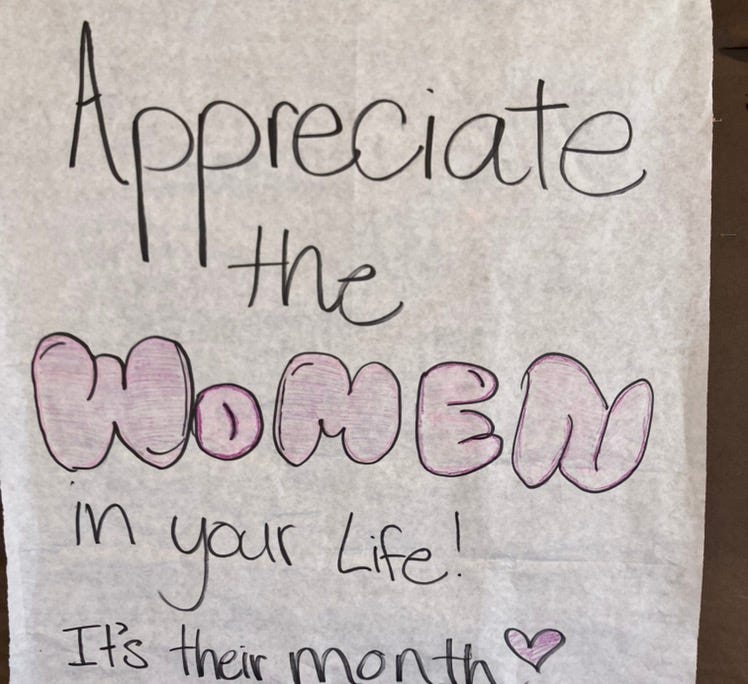 Appreciate
the
WOMEN
in your Life!
It's their month